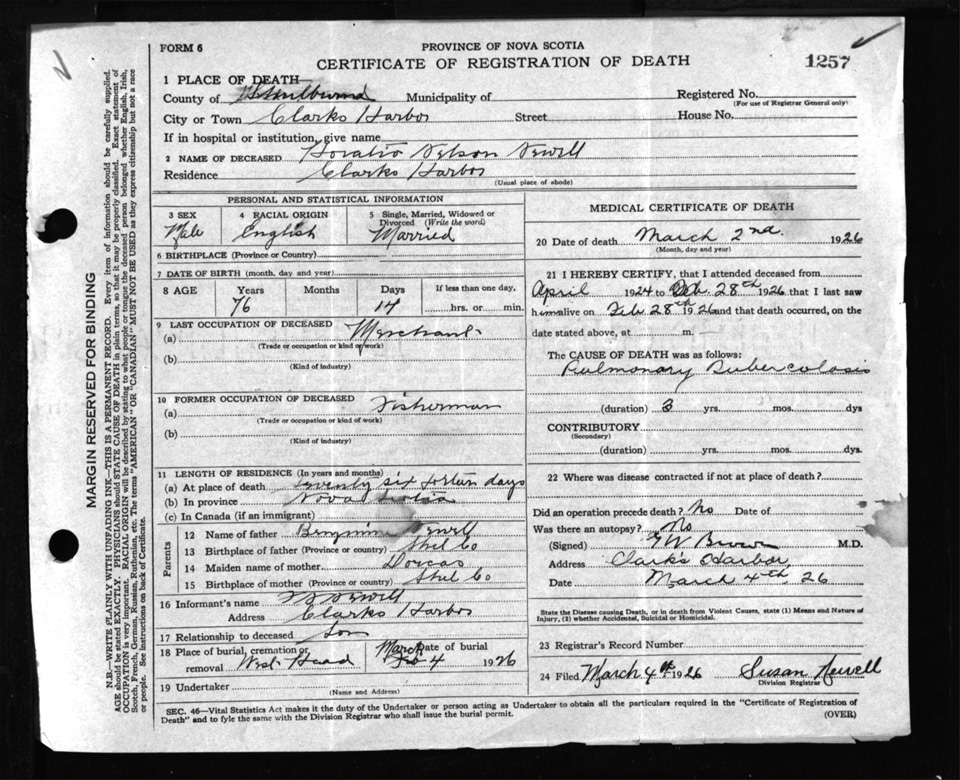 FORM 6
PROVINCE OF NOVA SCOTIA
CERTIFICATE OF REGISTRATION OF DEATH
1257
1 PLACE OF DEATH—
County of Shelburne Municipality of
Registered No.
(For use of Registrar General only)
City or Town Clarks Harbor Street
House No.
If in hospital or institution, give name
2 NAME OF DECEASED Horatio Nelson Newell
Residence Clarks Harbor
(Usual place of abode)
PERSONAL AND STATISTICAL INFORMATION
3 SEX
Male
4 RACIAL ORIGIN
English
5 Single, Married, Widowed or
Divorced (Write the word)
Married
6 BIRTHPLACE (Province or Country)
7 DATE OF BIRTH (month, day and year)
8 AGE Years Months Days If less than one day,
76 14 hrs. or min.
9 LAST OCCUPATION OF DECEASED
(a) Merchant
(Trade or occupation or kind of work)
(b)
(Kind of industry)
10 FORMER OCCUPATION OF DECEASED
(a) Fisherman
(Trade or occupation or kind of work)
(b)
(Kind of industry)
11 LENGTH OF RESIDENCE (In years and months)
(a) At place of death seventy six forten days
(b) In province Nova Scotia
(c) In Canada (if an immigrant)
Parents
12 Name of father Benjimin Newell
13 Birthplace of father (Province or country) Shel Co
14 Maiden name of mother Dorcas
15 Birthplace of mother (Province or country) Shel Co
16 Informant's name Newell
Address Clarks Harbor
17 Relationship to deceased Son
18 Place of burial, cremation or
removal West Head
Date of burial
March 4 1926
19 Undertaker
(Name and Address)
MEDICAL CERTIFICATE OF DEATH
20 Date of death March 2nd 1926
(Month, day and year)
21 I HEREBY CERTIFY, that I attended deceased from
April 1924 to Feb. 28th 1926 that I last saw
him alive on Feb. 28th 1926 and that death occurred, on the
date stated above, at m.
The CAUSE OF DEATH was as follows:
Pulmonary Tuberculosis
(duration) 3 yrs. mos. dys
CONTRIBUTORY
(Secondary)
(duration) yrs. mos. dys.
22 Where was disease contracted if not at place of death?
Did an operation precede death? No Date of
Was there an autopsy? No
(Signed) Brown M.D.
Address Clark's Harbor,
Date March 4th 26
State the Disease causing Death, or in death from Violent Causes, state (1) Means and Nature of
Injury, (2) whether Accidental, Suicidal or Homicidal.
23 Registrar's Record Number
24 Filed March 4th 1926 Susan Newell
Division Registrar
SEC. 46—Vital Statistics Act makes it the duty of the Undertaker or person acting as Undertaker to obtain all the particulars required in the "Certificate of Registration of
Death" and to fyle the same with the Division Registrar who shall issue the burial permit.
(OVER)
MARGIN RESERVED FOR BINDING
N.B.—WRITE PLAINLY WITH UNFADING INK—THIS IS A PERMANENT RECORD. Every item of information should be carefully supplied.
AGE should be stated EXACTLY. PHYSICIANS should STATE CAUSE OF DEATH in plain terms, so that it may be properly classified. Exact statement of
OCCUPATION is very important. RACIAL ORIGIN will be described by stating to what people or tongue the deceased person belonged whether English, Irish,
Scotch, French, German, Russian, Ruthenian, etc. The terms "AMERICAN" OR "CANADIAN" MUST NOT BE USED as they express citizenship but not a race
or people. See instructions on back of Certificate.